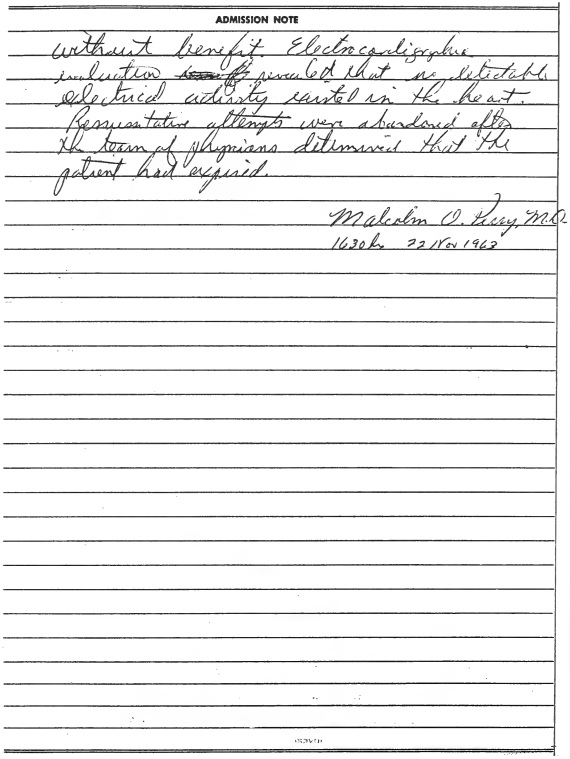 ADMISSION NOTE
without benefit. Electrocardigraphic
evaluation revealed that no detectable
electrical activity existed in the heart.
Resuscitative attempts were abandoned after
the team of physicians determined that the
patient had expired.
Malcolm O. Perry, M.D.
1630 hr 22 Nov 1963